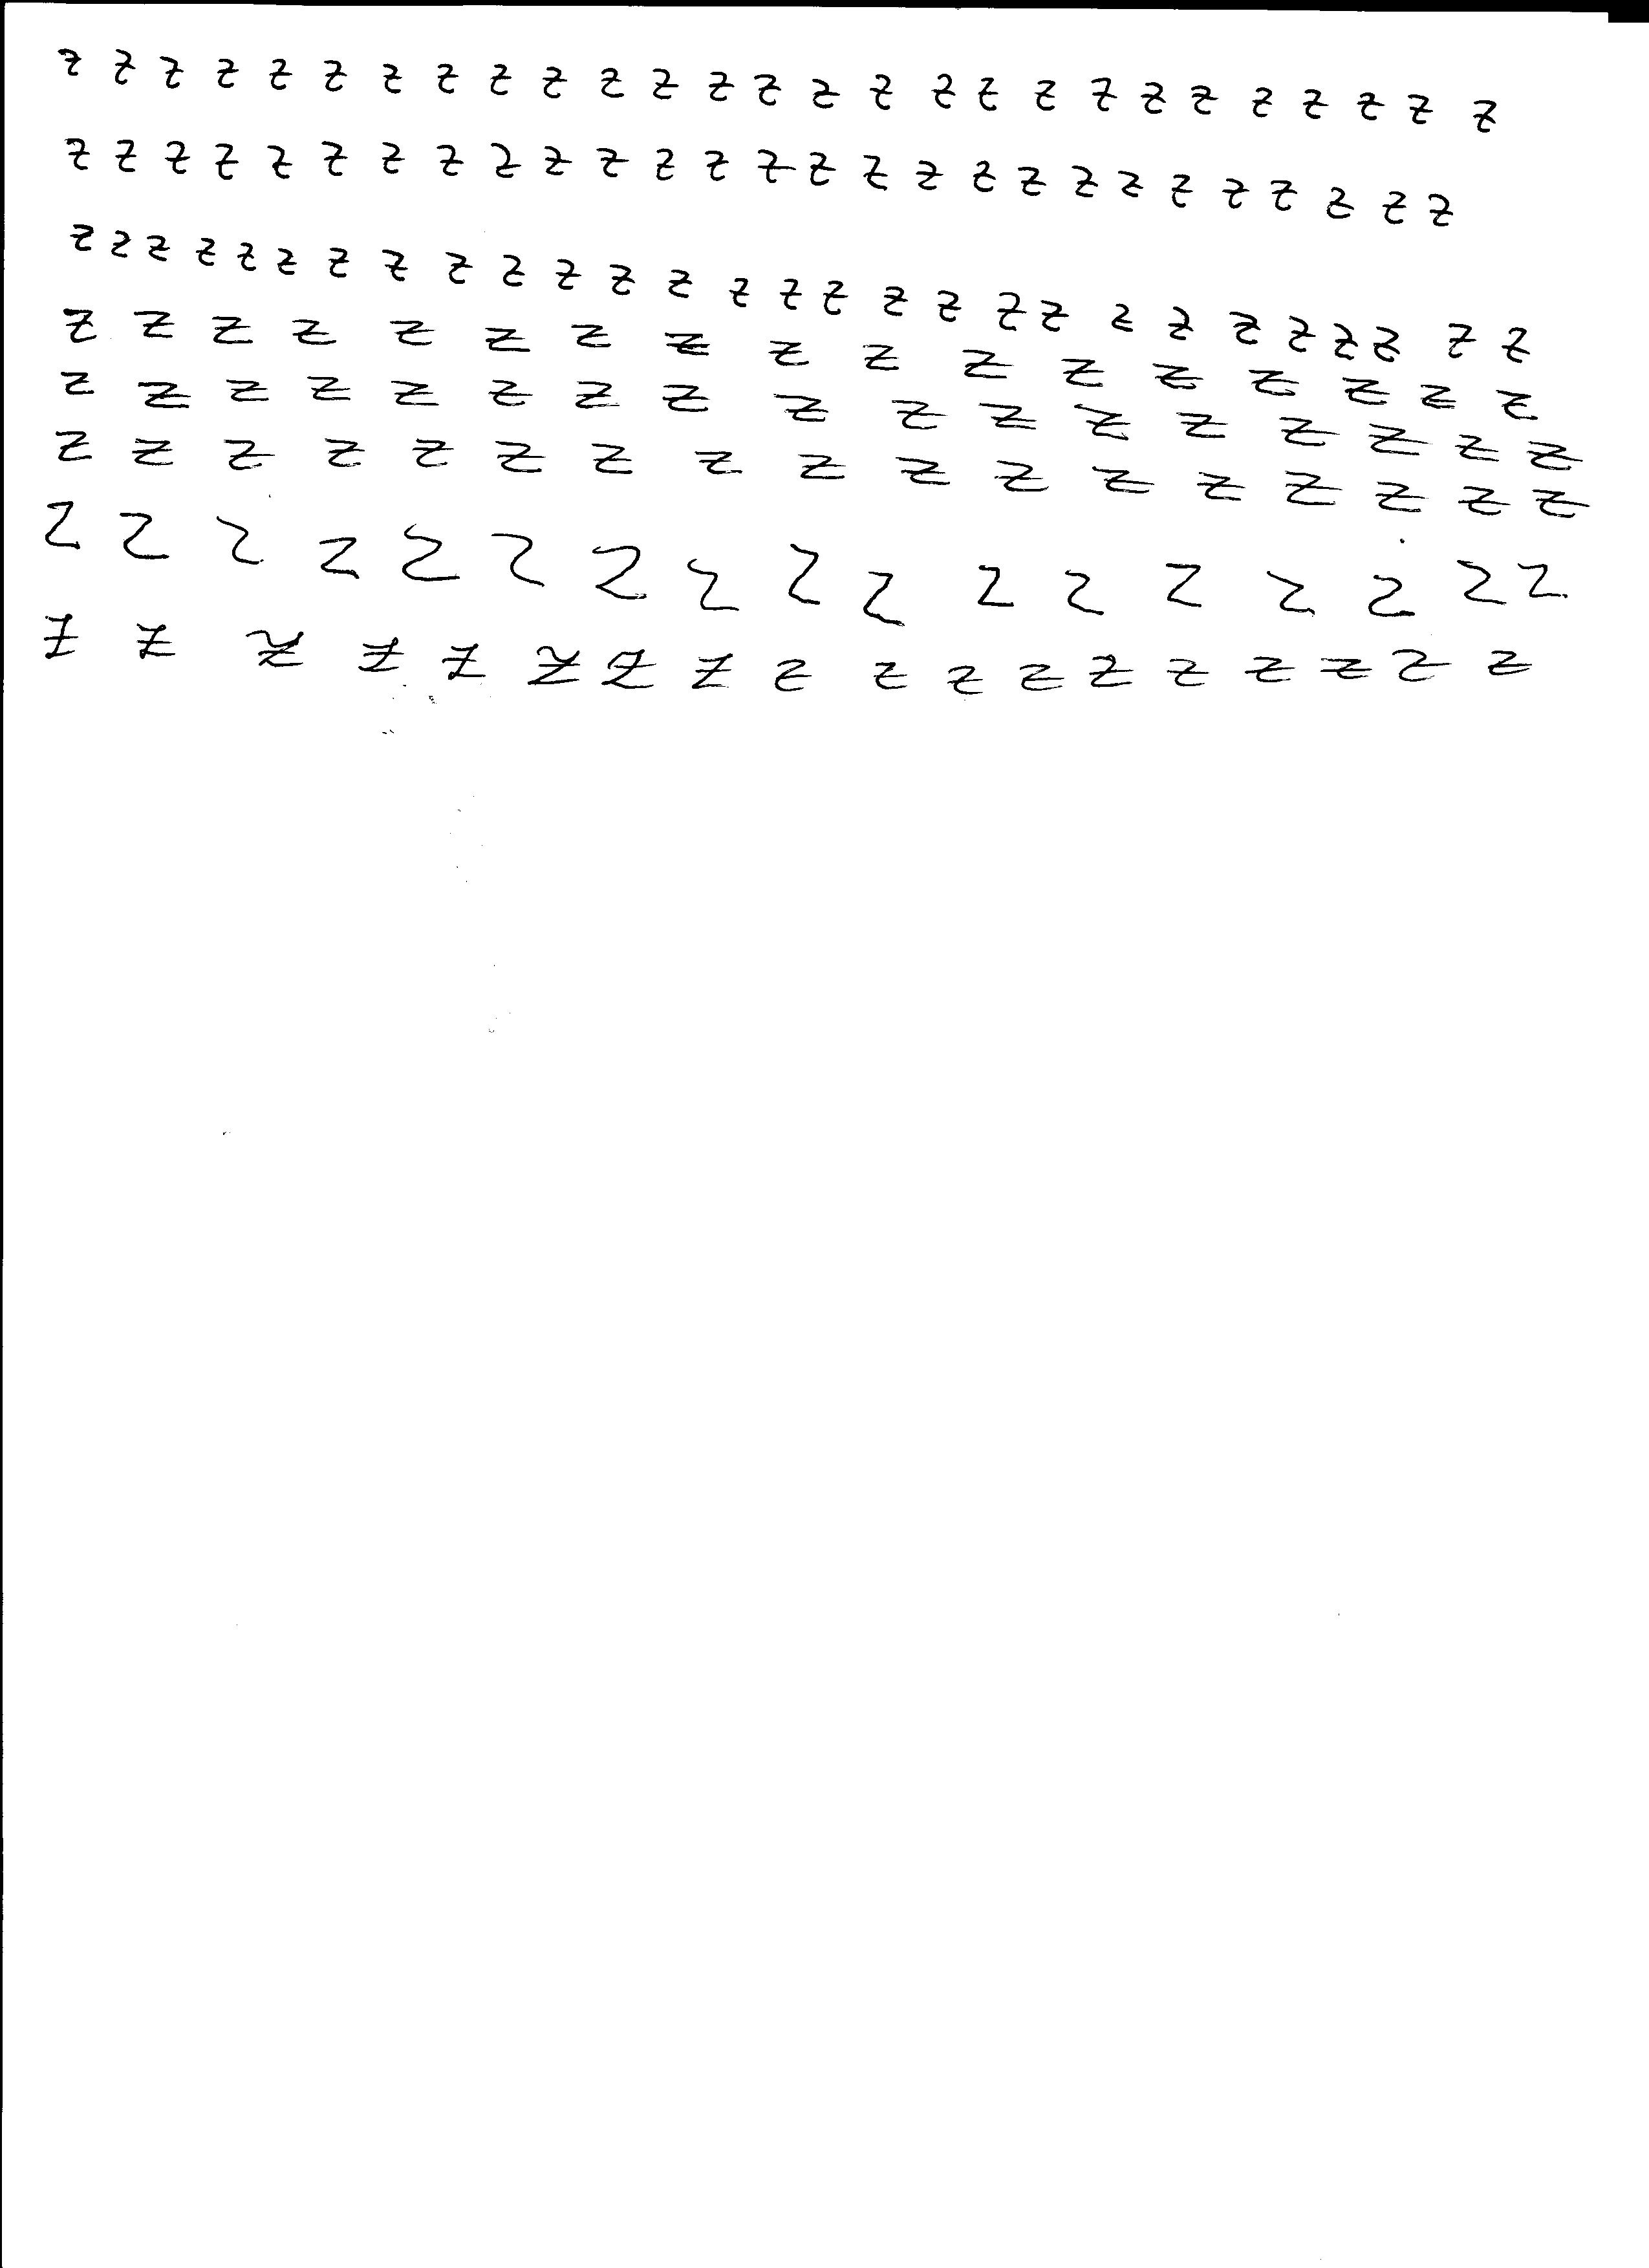 z z z z z z z z z z z z z z z z z z z z z z z z z z z
z z z z z z z z z z z z z z z z z z z z z z z z z z z
z z z z z z z z z z z z z z z z z z z z z z z z z z z z
z z z z z z z z z z z z z z z z z
z z z z z z z z z z z z z z z z z
z z z z z z z z z z z z z z z z z
z z z z z z z z z z z z z z z z z
z z z z z z z z z z z z z z z z z z